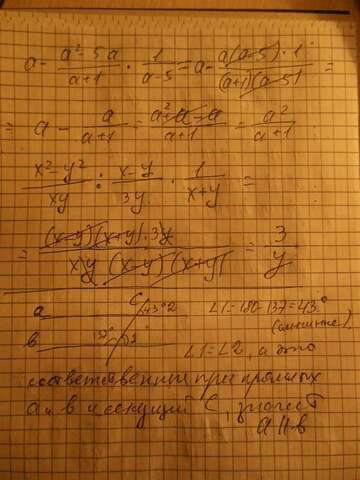 a - \frac{a²-5a}{a+1} · \frac{1}{a-5} = a - \frac{a(a-5)·1}{(a+1)(a-5)} =
= a - \frac{a}{a+1} = \frac{a²+a-a}{a+1} = \frac{a²}{a+1}
\frac{x²-y²}{xy} : \frac{x-y}{3y} · \frac{1}{x+y} =
= \frac{(x-y)(x+y)·3y}{xy(x-y)(x+y)} = \frac{3}{y}
a c 43° 2
∠1=180-137=43°
(смежные)
в 137° 1
∠1=∠2, а это
соответственные при прямых
a и в и секущей C, значит
a || в